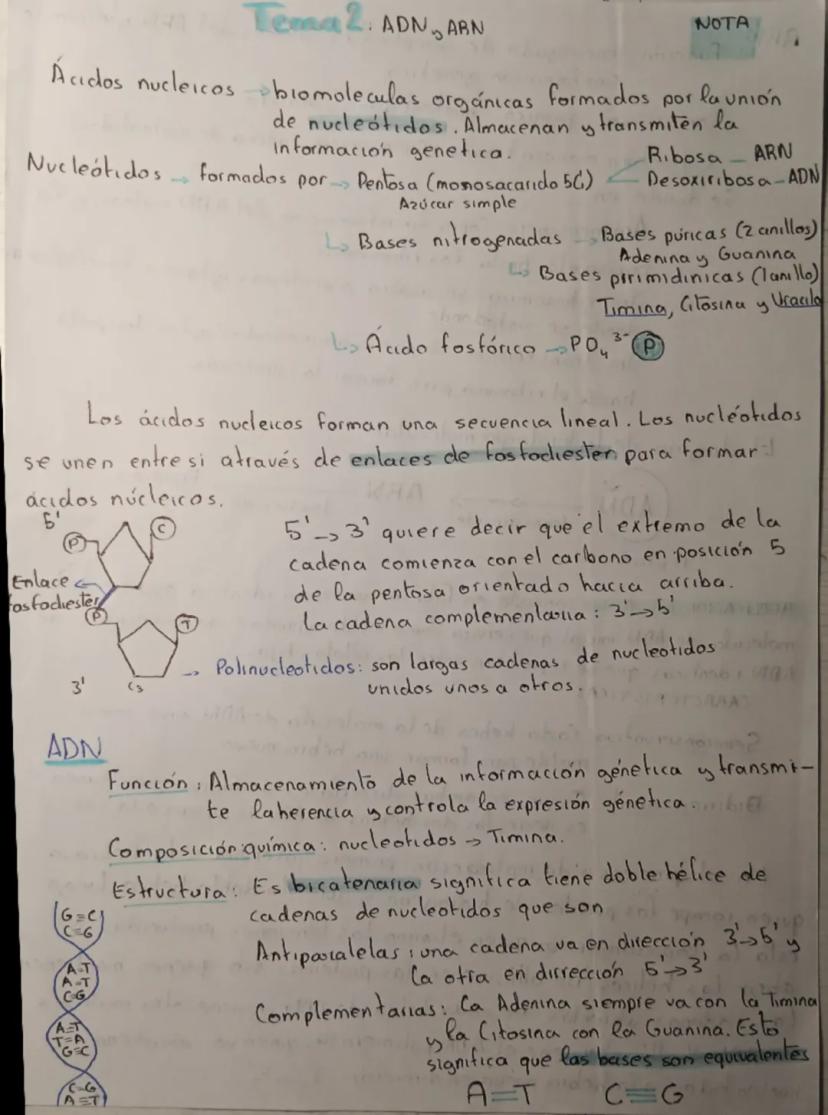 Tema 2: ADN y ARN
NOTA
Ácidos nucleicos → biomoleculas orgánicas formados por la unión
de nucleótidos. Almacenan y transmiten la
información genetica.
Nucleótidos → formados por → Pentosa (monosacarido 5C)
Azúcar simple
Ribosa - ARN
Desoxiribosa - ADN
↳ Bases nitrogenadas → Bases púricas (2 anillos)
Adenina y Guanina
↳ Bases pirimidinicas (1 anillo)
Timina, Citosina y Uracilo
↳ Ácido fosfórico → PO₄³⁻ P
Los ácidos nucleicos forman una secuencia lineal. Los nucléotidos
se unen entre si através de enlaces de fosfodiester para formar
ácidos núcleicos.
5'
P
C
Enlace
fosfodiester
P
T
3'
C3
5' → 3' quiere decir que el extremo de la
cadena comienza con el carbono en posición 5
de la pentosa orientado hacia arriba.
La cadena complementaria: 3' → 5'
→ Polinucleotidos: son largas cadenas de nucleotidos
unidos unos a otros.
ADN
Función: Almacenamiento de la información génetica y transmi-
te la herencia y controla la expresión génetica.
Composición química: nucleotidos → Timina.
Estructura: Es bicatenaria significa tiene doble hélice de
cadenas de nucleotidos que son
Antiparalelas: una cadena va en dirección 3' → 5' y
la otra en dirrección 5' → 3'
Complementarias: La Adenina siempre va con la Timina
y la Citosina con la Guanina. Esto
significa que las bases son equivalentes
A=T C≡G
G≡C
C≡G
A=T
A=T
C≡G
A=T
T=A
G≡C
C=G
A=T